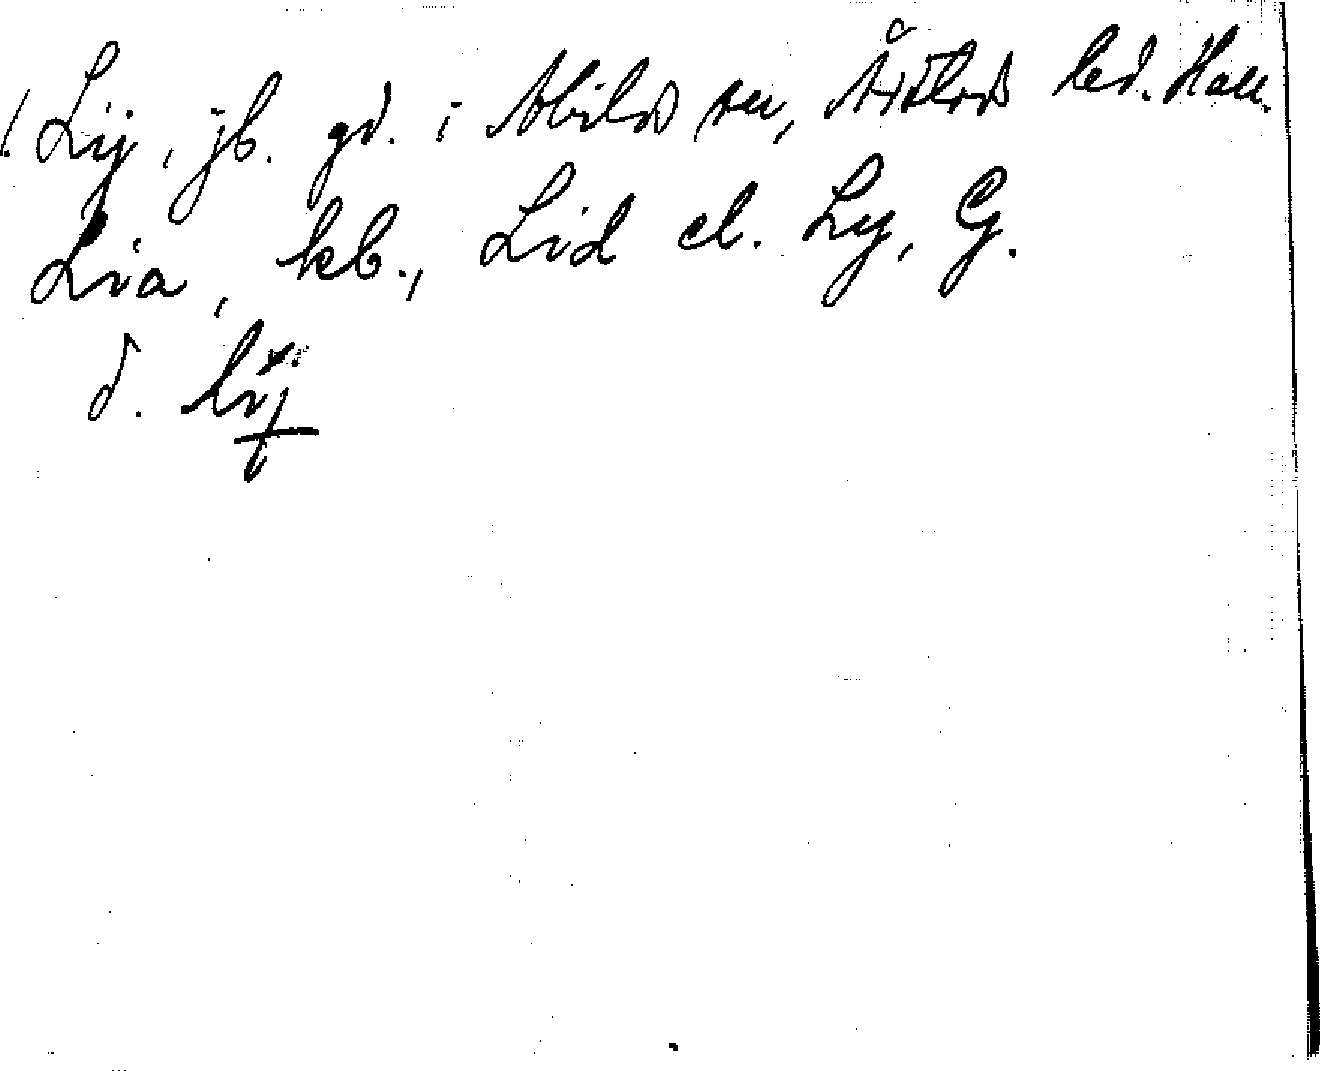 Lij, jb. gd. i Abild sn, Årstad hd. Hall.
Lia, kb., Lid el. Ly, G.
d. lij